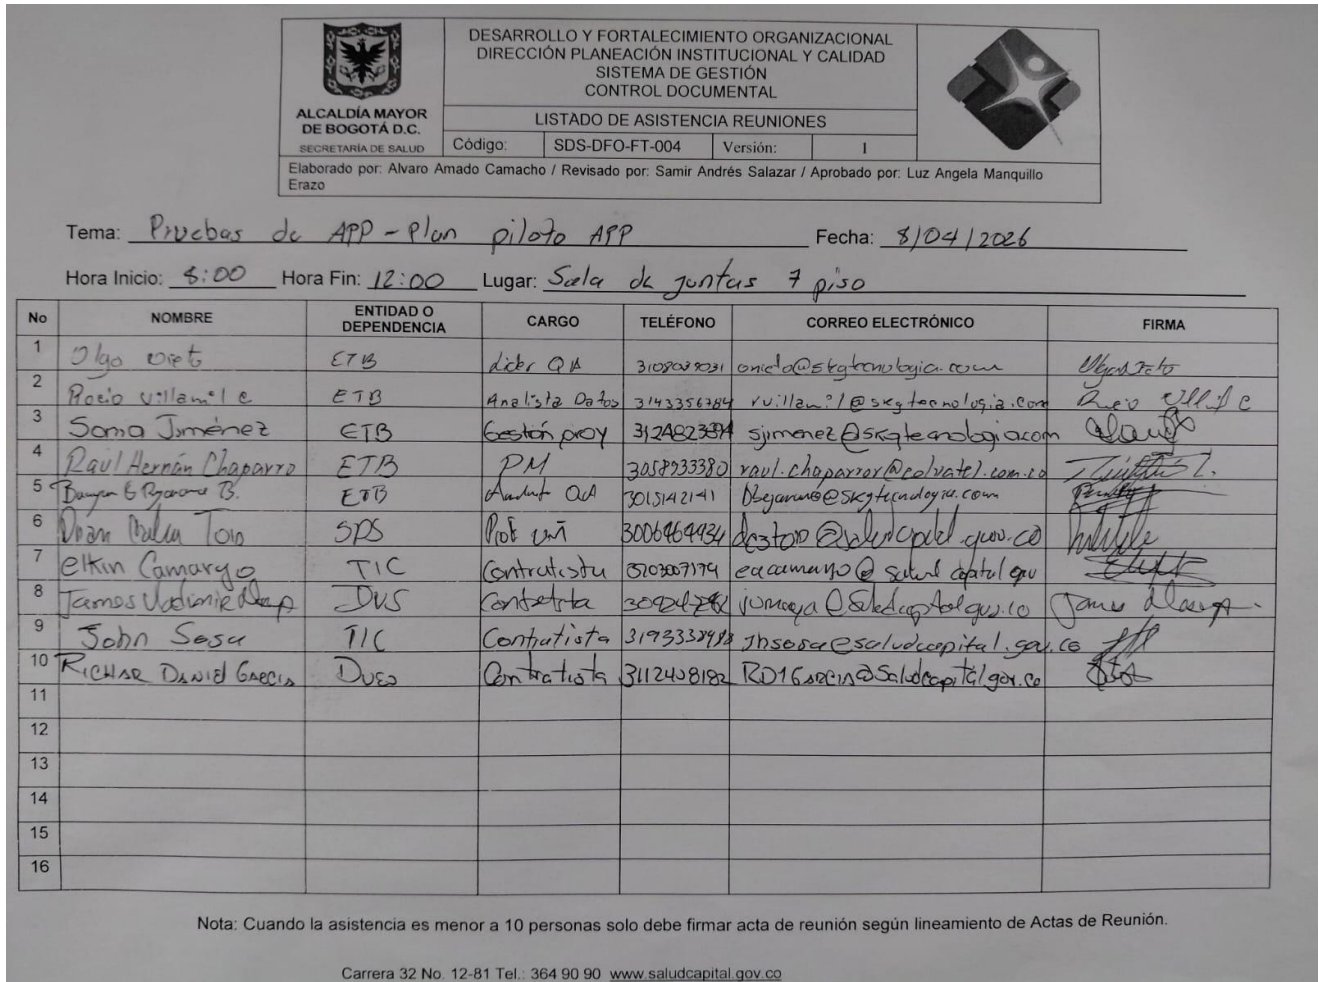 ALCALDÍA MAYOR
DE BOGOTÁ D.C.
SECRETARÍA DE SALUD
DESARROLLO Y FORTALECIMIENTO ORGANIZACIONAL
DIRECCIÓN PLANEACIÓN INSTITUCIONAL Y CALIDAD
SISTEMA DE GESTIÓN
CONTROL DOCUMENTAL
LISTADO DE ASISTENCIA REUNIONES
Código: SDS-DFO-FT-004 Versión: 1
Elaborado por: Alvaro Amado Camacho / Revisado por: Samir Andrés Salazar / Aprobado por: Luz Angela Manquillo
Erazo
Tema: Pruebas de APP - Plan piloto APP Fecha: 8/04/2026
Hora Inicio: 8:00 Hora Fin: 12:00 Lugar: Sala de juntas 7 piso
No NOMBRE ENTIDAD O DEPENDENCIA CARGO TELÉFONO CORREO ELECTRÓNICO FIRMA
1 ETB Lider QA
2 Rocio Villamil C ETB Analista Datos 3143356784 rvillamil@skgtecnologia.com
3 Sonia Jiménez ETB Gestión proy sjimenez@skgtecnologia.com
4 Raúl Hernán Chaparro ETB PM 3058933380 raul.chaparror@colvatel.com.co
5 ETB QA 3015142141
6 SDS 3006464434
7 elkin Camargo TIC Contratista 3203007174
8 James Contratista
9 John Sosa TIC Contratista Jhsosa@saludcapital.gov.co
10 RICHAR DANIEL GARCIA Contratista 3112408182 RD1GARCIA@Saludcapital.gov.co
11
12
13
14
15
16
Nota: Cuando la asistencia es menor a 10 personas solo debe firmar acta de reunión según lineamiento de Actas de Reunión.
Carrera 32 No. 12-81 Tel.: 364 90 90 www.saludcapital.gov.co